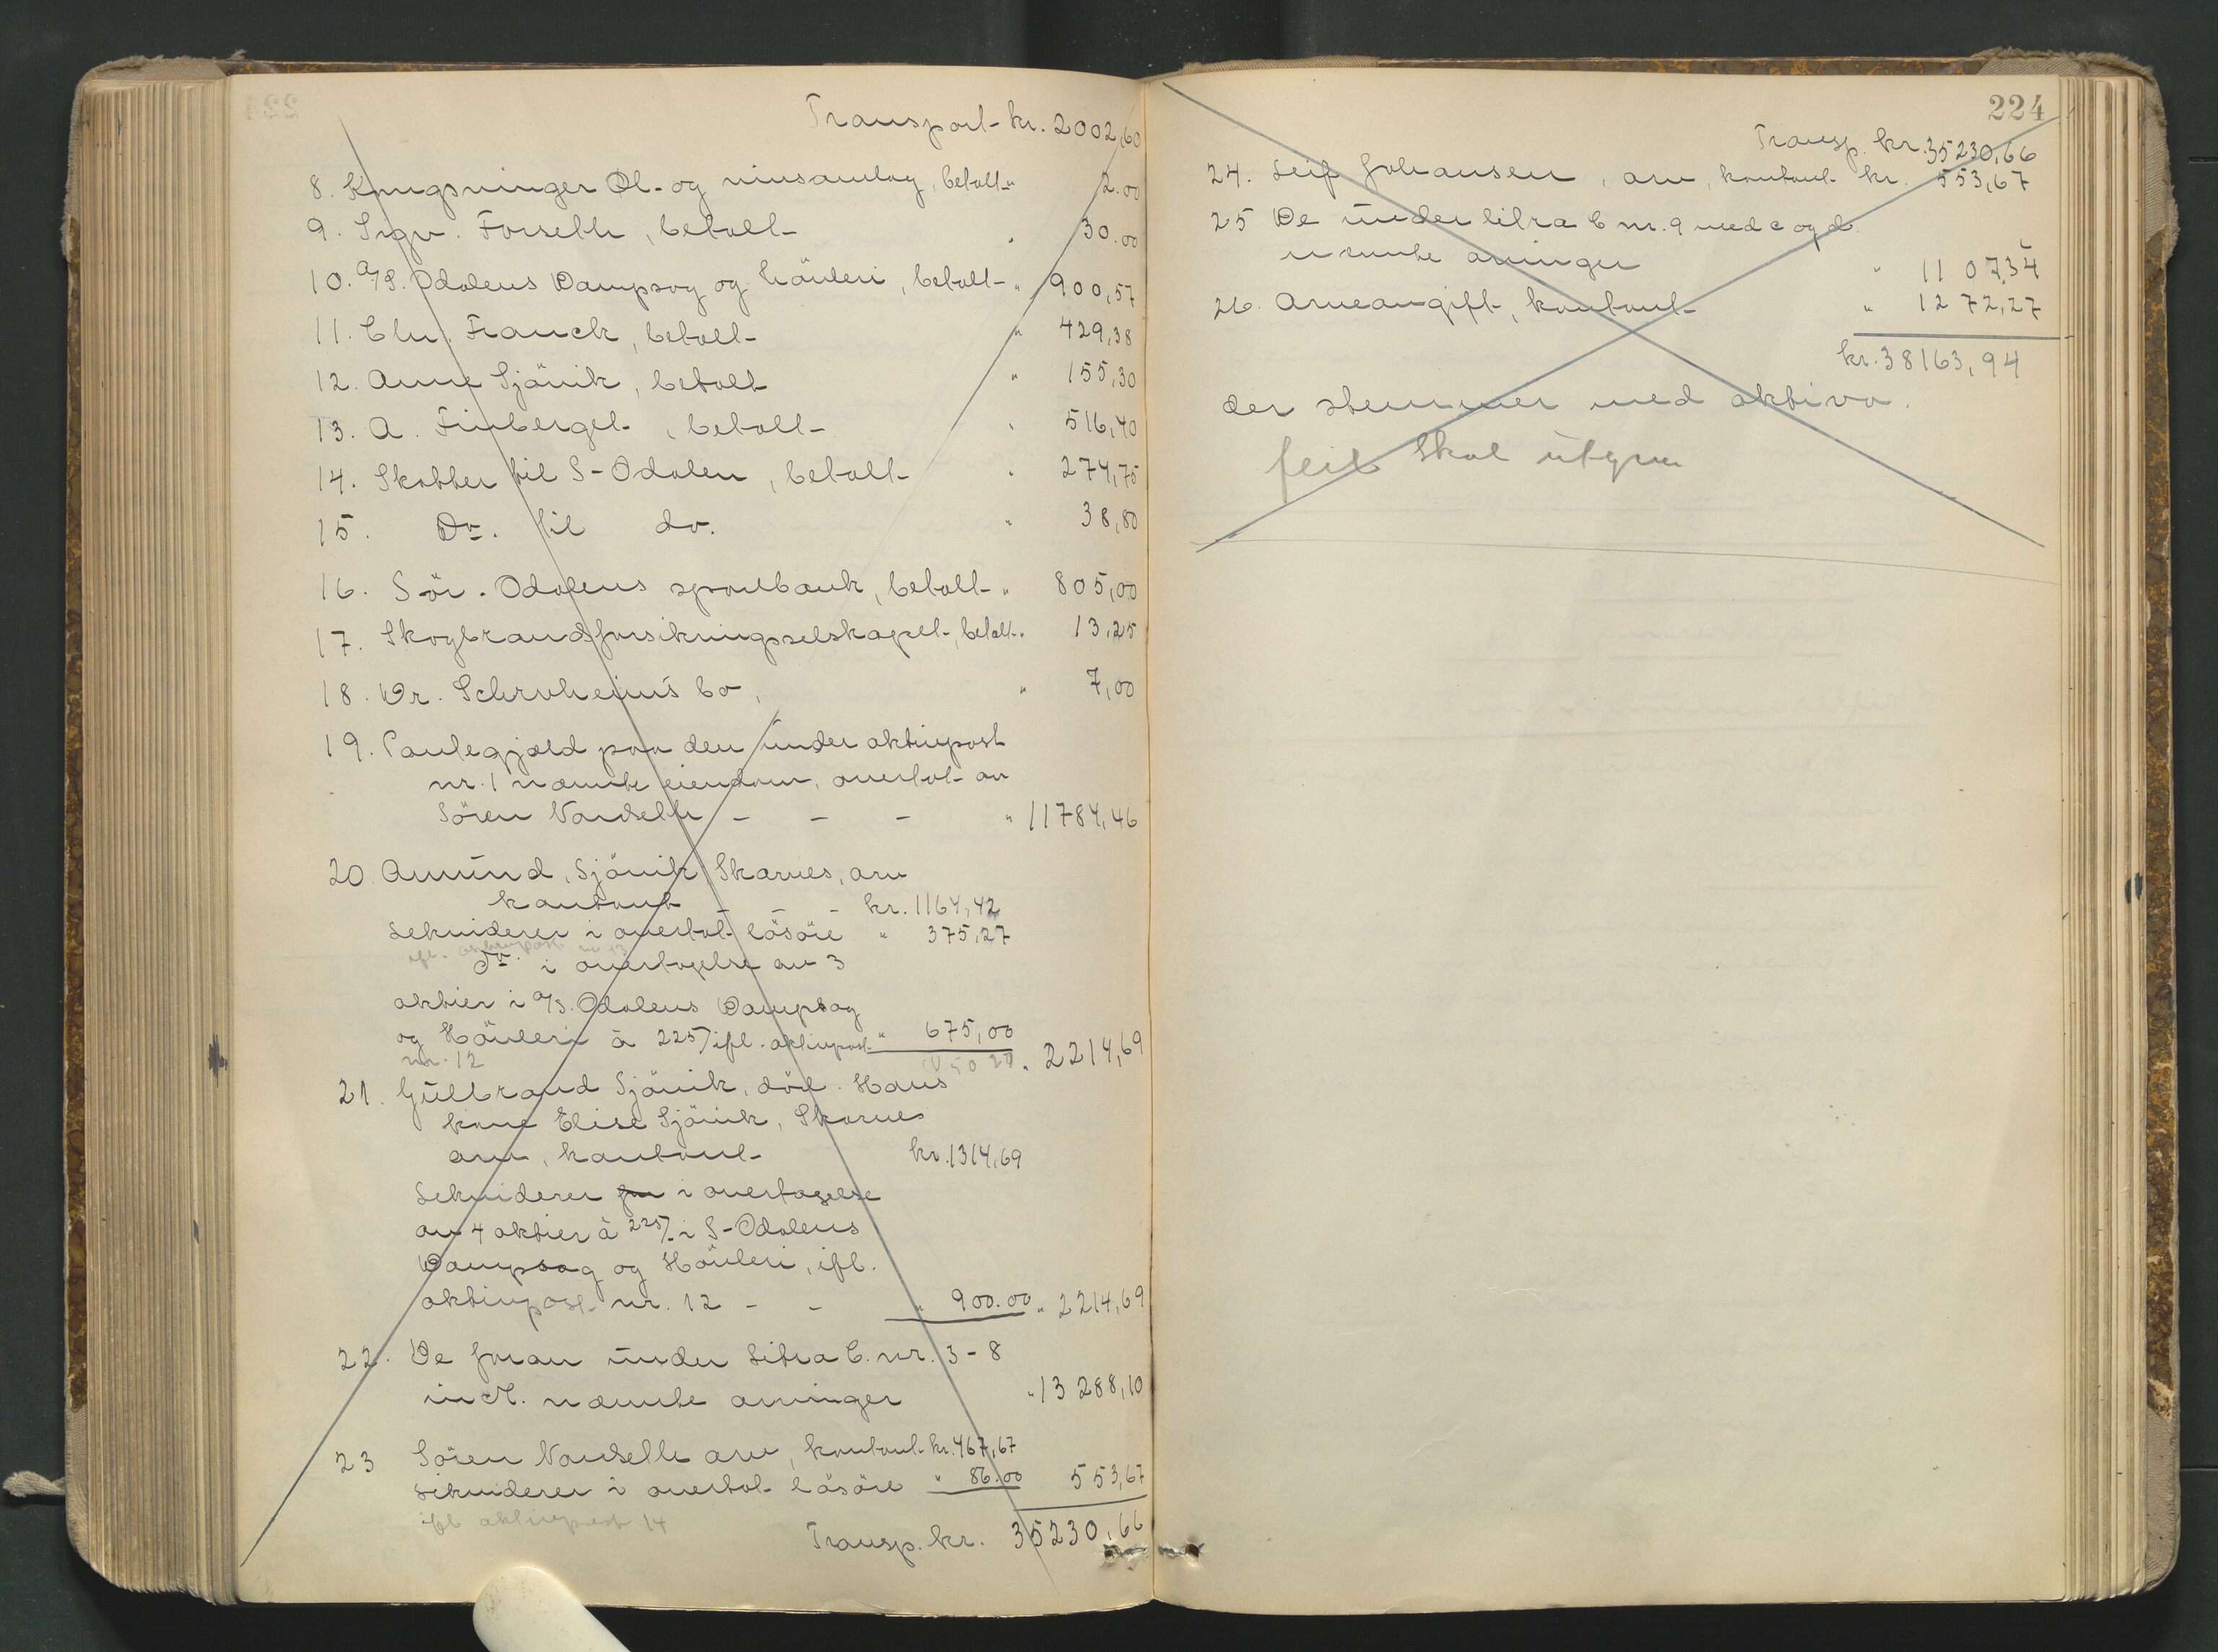 Transport kr. 2002,60
8. Kongsvinger Öl- og vinsamlag, betalt " 2.00
9. Sigv. Forseth, betalt " 30.00
10. A/S. Odalens Dampsag og hövleri, betalt " 900,57
11. Chr. Franck, betalt " 429,38
12. Anne Sjövik, betalt " 155,30
13. A. Finberget, betalt " 516,40
14. Skatter til S-Odalen, betalt " 274,75
15. Do. til do. " 38,80
16. Sör-Odalens sparebank, betalt " 805,00
17. Skogbrandforsikringsselskapet, betalt " 13,25
18. Dr. Schrvheim's bo, " 7,00
19. Pantegjæld paa den under aktivpost
nr. 1 nævnte eiendom, overtat av
Sören Vardeth - - - " 11784,46
20 Amund Sjövik, Skarnes, arv
kontant - - - kr. 1164,42
Lekviderer i overtat lösöre " 375,27
ifl. aktivpost nr 13
Do. i overtagelse av 3
aktier i A/S. Odalens Dampsag
og Hövleri à 225/ ifl. aktivpost " 675,00
nr. 12 " 2214,69
21. Gulbrand Sjövik, död. Hans
kone Elise Sjövik, Skarnes
arv, kontant kr. 1314,69
Lekviderer for i overtagelse
av 4 aktier à 225/. i S-Odalens
Dampsag og Hövleri, ifl.
aktivpost nr. 12 - - " 900.00 " 2214,69
22. De foran under Litra C. nr. 3-8
incl. nævnte arvinger " 13 288,10
23 Sören Vardeth arv, kontant kr. 467,67
Likviderer i overtat lösöre " 86.00 553,67
ifl aktivpost 14
Transp. kr. 35230,66
224
Transp. kr. 35230,66
24. Leif Johansen, arv, kontant kr. 553,67
25 De under litra C nr. 9 med c og d.
nævnte arvinger " 11 07,34
26. Arveavgift, kontant " 12 72,27
kr. 38163,94
der stemmer med aktiva.
feil Skal utgaa